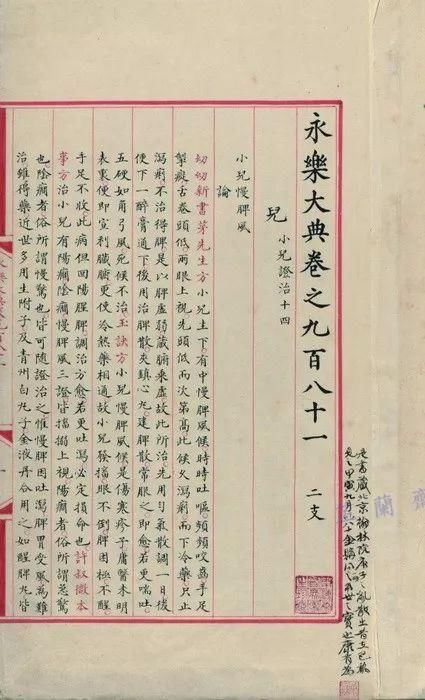 永樂大典卷之九百八十一　二支
兒　小兒證治十四
小兒慢脾風
論
幼幼新書茅先生方小兒生下有中慢脾風候時時吐嘔頻頻咬齒手足
掣瘲舌卷頭低兩眼上視先頭低而次第高此候久瀉痢而下冷藥只止
瀉痢不治得脾是以脾虛藏腑乘虛故此所治先用勻氣散調一日後
便下一醉膏通下後用治脾散夾鎮心丸建脾散常服之即愈若更喘吐
五硬如角弓風死候不治玉訣方小兒慢脾風候是傷寒疹子庸醫未明
表裏便即宣利臟腑更使冷熱藥相通故小兒發搐眼不倒脾困極不醒
手足不收此病但回陽醒脾調治方愈若更吐瀉必定損命也許叔微本
事方治小兒有陽癇陰癇慢脾風三證皆搐搦上視陽癇者俗所謂急驚
也陰癇者俗所謂慢驚也皆可隨證治之惟慢脾因吐瀉脾胃受風為難
治維得藥近世多用生附子及青州白丸子金液丹合用之如醒脾丸皆
是書藏北京翰林院庚子之亂散出